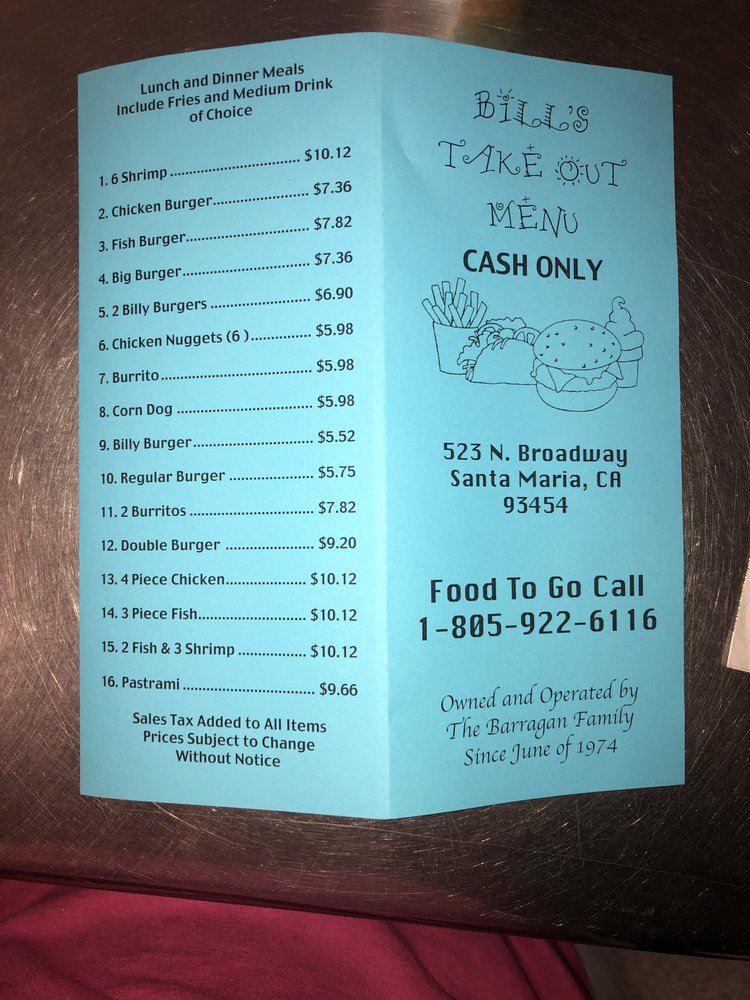 Lunch and Dinner Meals
Include Fries and Medium Drink
of Choice
1. 6 Shrimp ................................ $10.12
2. Chicken Burger........................ $7.36
3. Fish Burger.............................. $7.82
4. Big Burger............................... $7.36
5. 2 Billy Burgers ........................ $6.90
6. Chicken Nuggets (6 )............... $5.98
7. Burrito..................................... $5.98
8. Corn Dog ................................. $5.98
9. Billy Burger.............................. $5.52
10. Regular Burger ..................... $5.75
11. 2 Burritos .............................. $7.82
12. Double Burger ...................... $9.20
13. 4 Piece Chicken.................... $10.12
14. 3 Piece Fish.......................... $10.12
15. 2 Fish & 3 Shrimp ................. $10.12
16. Pastrami ................................. $9.66
Sales Tax Added to All Items
Prices Subject to Change
Without Notice
BILL'S
TAKE OUT
MENU
CASH ONLY
523 N. Broadway
Santa Maria, CA
93454
Food To Go Call
1-805-922-6116
Owned and Operated by
The Barragan Family
Since June of 1974